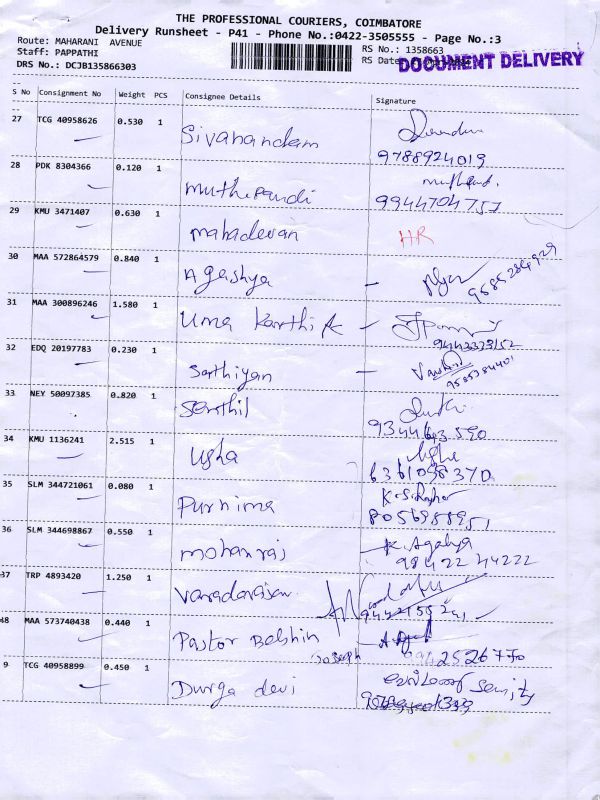 THE PROFESSIONAL COURIERS, COIMBATORE
Delivery Runsheet - P41 - Phone No.:0422-3505555 - Page No.:3
Route: MAHARANI AVENUE
RS No.: 1358663
Staff: PAPPATHI
RS Date
DOCUMENT DELIVERY
DRS No.: DCJB135866303
S No Consignment No Weight PCS Consignee Details Signature
27 TCG 40958626 0.530 1 Sivanandam
9788924019
28 PDK 8304366 0.120 1 Muthupandi
9944704757
29 KMU 3471407 0.630 1 Mahadevan HR
30 MAA 572864579 0.840 1 Agashya -
9585284929
31 MAA 300896246 1.580 1 Uma Karthik -
9443333152
32 EDQ 20197783 0.230 1 Sathiyan -
9585384401
33 NEY 50097385 0.820 1 Senthil
9344643590
34 KMU 1136241 2.515 1 Usha
6361098370
35 SLM 344721061 0.080 1 Purnima
8056988951
36 SLM 344698867 0.550 1 Mohanraj K. Agalya
98422 44222
37 TRP 4893420 1.250 1 Varadarajan
38 MAA 573740438 0.440 1 Pastor Belshin
Joseph
9 TCG 40958899 0.450 1 Durga devi